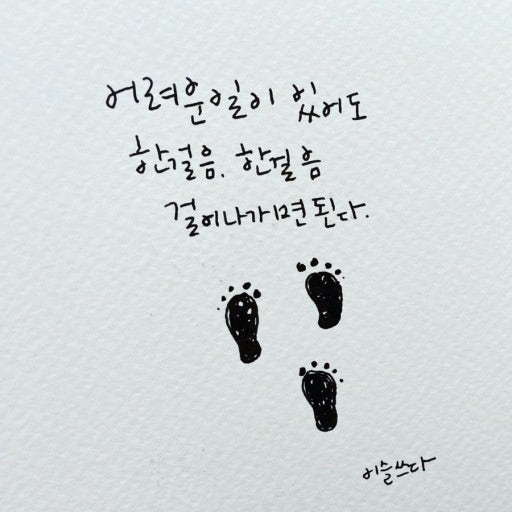 어려운일이 있어도
한걸음. 한걸음
걸어나가면된다.
이슬쓰다